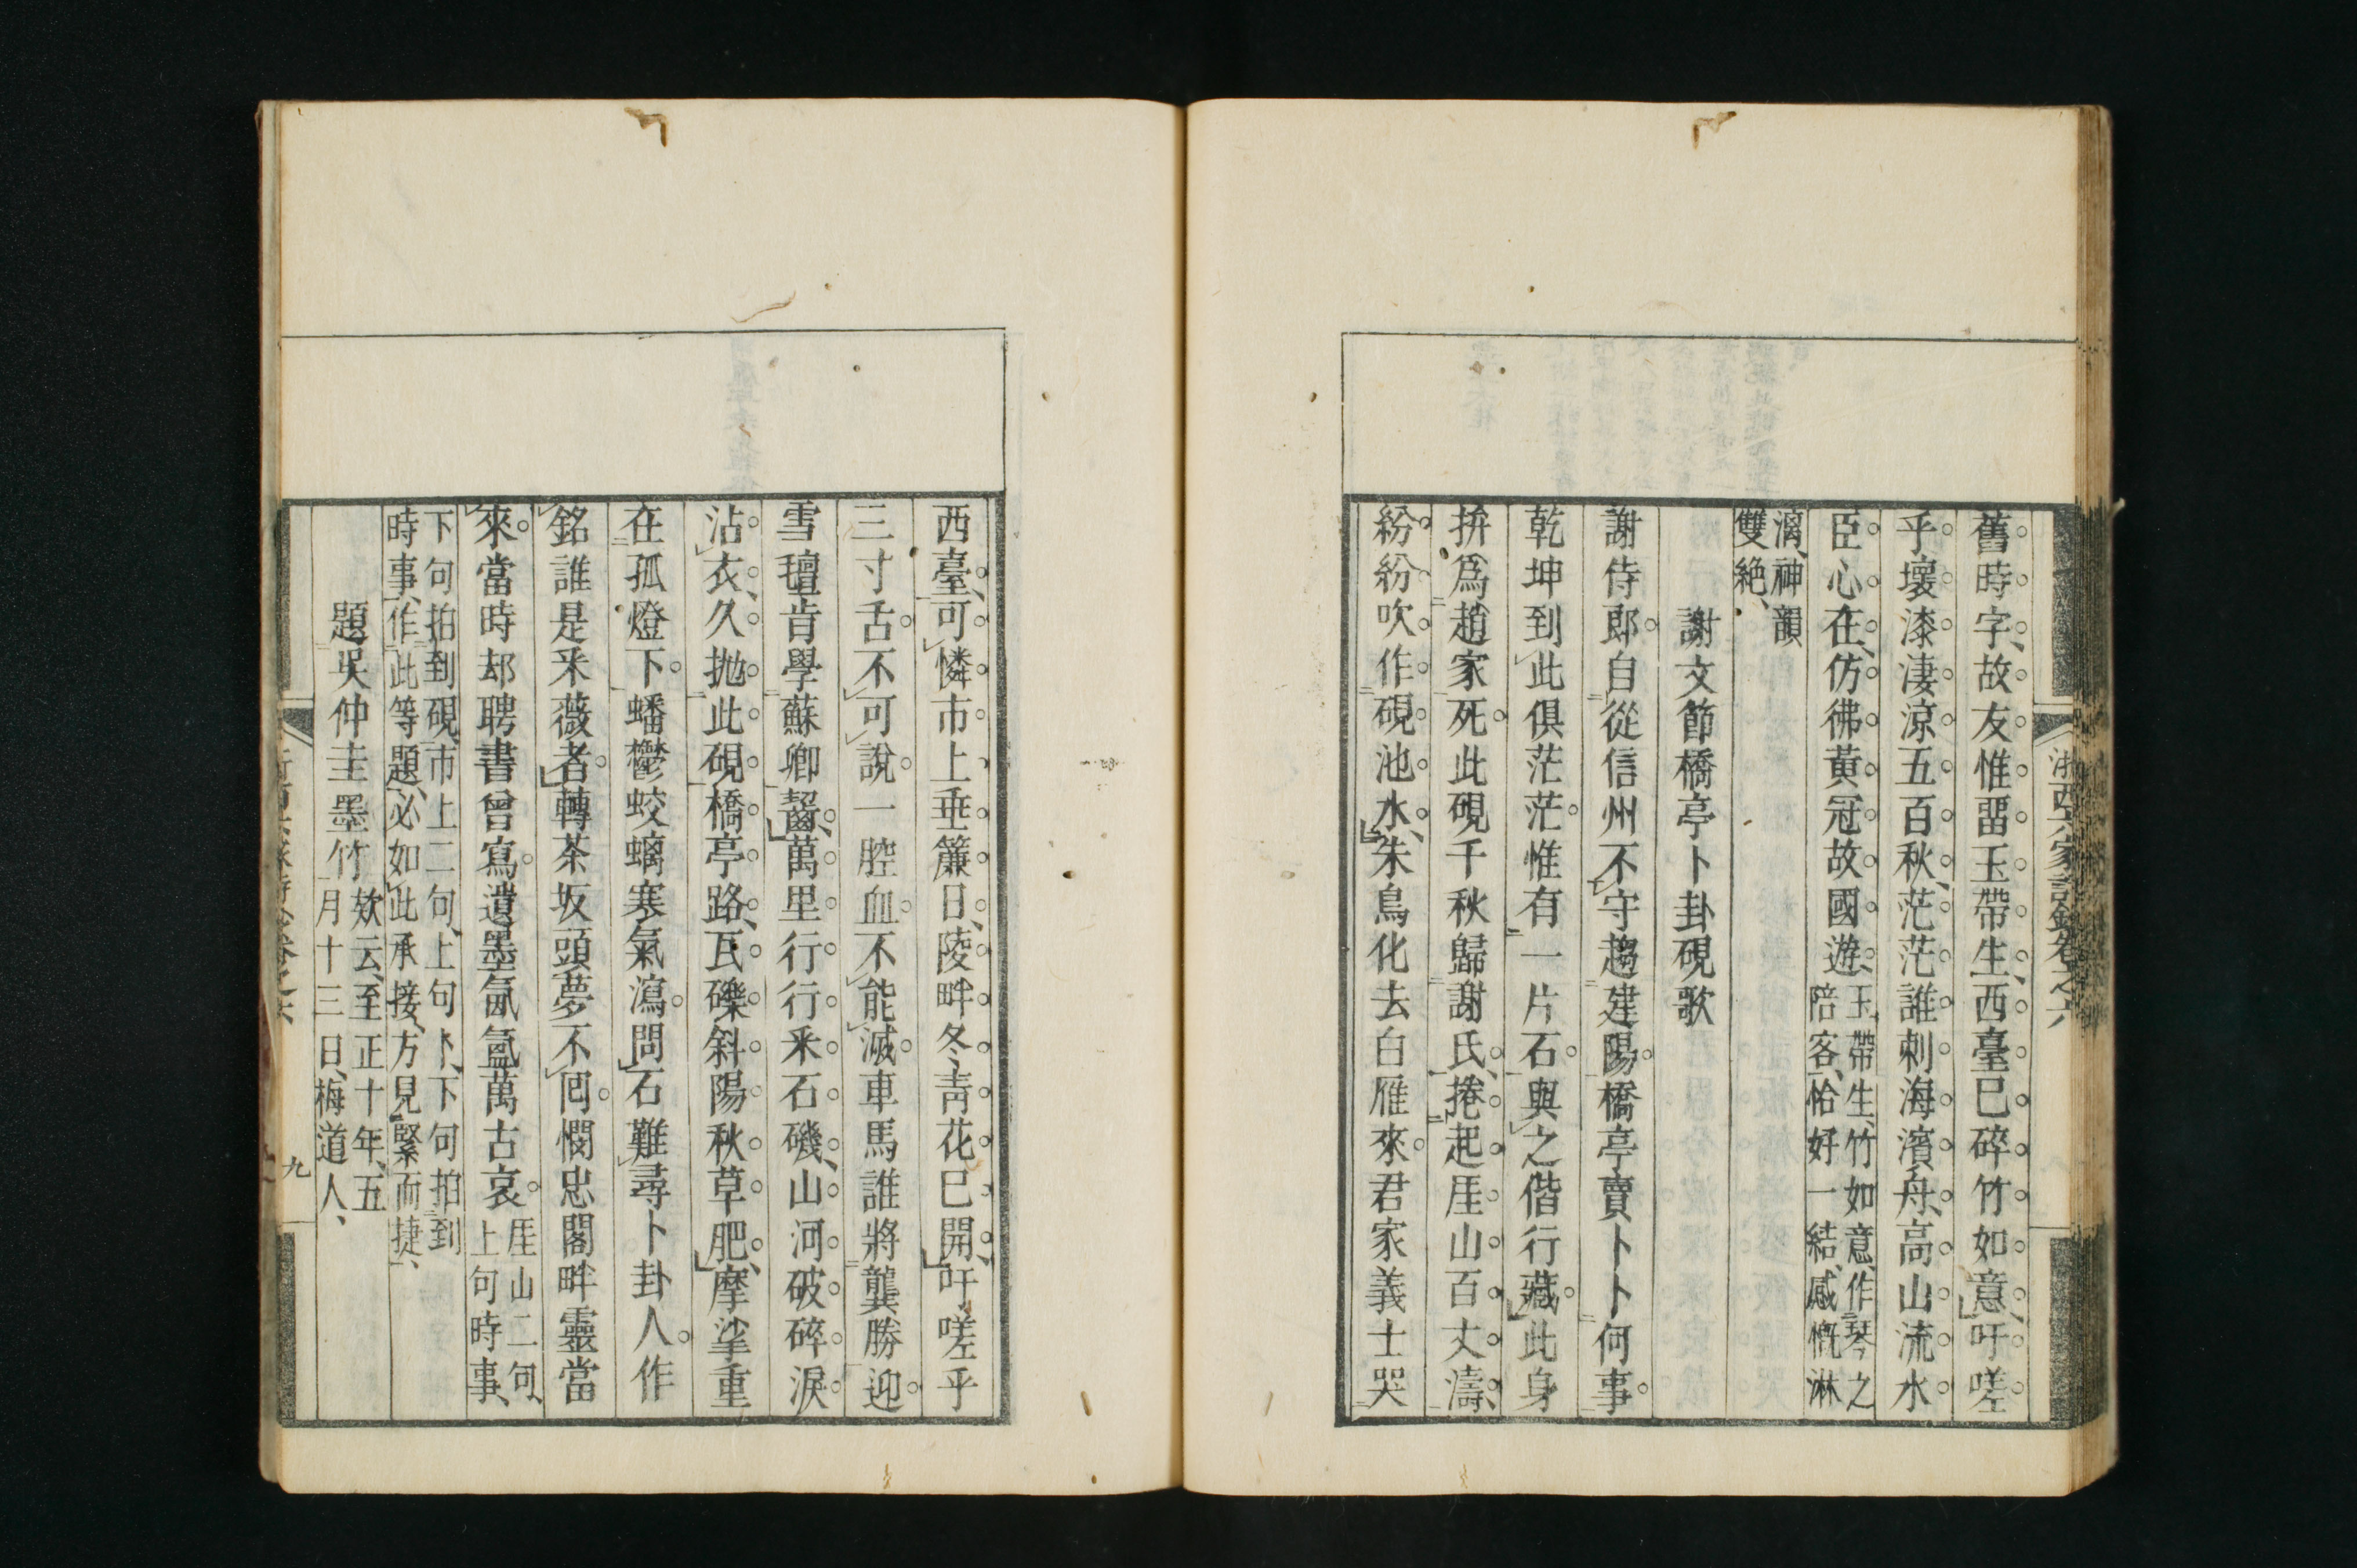 浙西六家詩鈔卷之六
舊時字、故友惟畱玉帶生、西臺已碎竹如意、吁嗟
乎壞漆凄涼五百秋、茫茫誰刺海濱舟、高山流水
臣心在、仿彿黃冠故國遊、玉帶生、竹如意、作琴之
陪客、恰好一結、感慨淋
漓、神韻
雙絕、
謝文節橋亭卜卦硯歌
謝侍郎自從信州不守趨建陽橋亭賣卜卜何事
乾坤到此俱茫茫惟有一片石與之偕行藏此身
拚爲趙家死此硯千秋歸謝氏、捲起厓山百丈濤、
紛紛吹作硯池水、朱鳥化去白雁來君家義士哭
西臺、可憐市上垂簾日、陵畔冬青花已開、吁嗟乎
三寸舌不可說一腔血不能滅車馬誰將龔勝迎
雪氊肯學蘇卿齧、萬里行行釆石磯、山河破碎淚
沾衣、久拋此硯橋亭路、瓦礫斜陽秋草肥、摩挲重
在孤燈下蟠鬱蛟螭寒氣瀉問石難尋卜卦人作
銘誰是釆薇者轉茶坂頭夢不囘憫忠閣畔靈當
來當時却聘書曾寫遺墨氤氳萬古哀厓山二句、
上句時事、
下句拍到硯、市上二句、上句卜、下句拍到
時事、作此等題、必如此承接、方見緊而捷、
題吳仲圭墨竹欵云、至正十年、五
月十三日、梅道人、
九